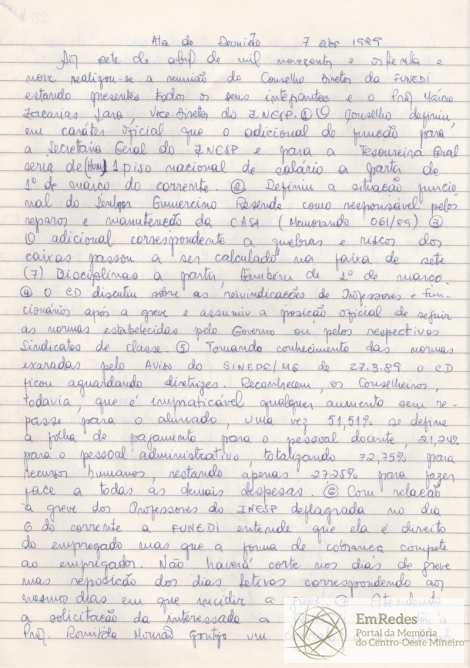 Ata da Reunião 7 Abr 1989
Aos sete de abril de mil novecentos e oitenta e
nove realizou-se a reunião do Conselho Diretor da FUNEDI
estando presentes todos os seus integrantes e o Prof. Mário
Zacarias Lara, Vice-Diretor do INESP. ① O Conselho definiu,
em caráter oficial que o adicional de função para
a Secretaria Geral do INESP e para a Tesoureira Geral
seria de (hum) 1 piso nacional de salário a partir de
1º de março do corrente. ② Definiu a situação funcio-
nal do Senhor Gumercino Resende como responsável pelos
reparos e manutenção da CASA (Memorando 061/89) ③
O adicional correspondente a quebras e riscos dos
caixas passou a ser calculado na faixa de sete
(7) Disciplinas a partir, também de 1º de março.
④ O CD discutiu sobre as reivindicações de Professores e fun-
cionários após a greve e assumiu a posição oficial de seguir
as normas estabelecidas pelo Governo ou pelos respectivos
Sindicatos de classe. ⑤ Tomando conhecimento das normas
exaradas pelo Aviso do SINEPE/MG de 27.3.89 o CD
ficou aguardando diretrizes. Reconhecem, os Conselheiros,
todavia, que é impraticável qualquer aumento sem re-
passe para o alunado, uma vez 51,51% se define
a folha de pagamento para o pessoal docente, 21,24%
para o pessoal administrativo, totalizando 72,75% para
recursos humanos, restando apenas 27.25% para fazer
face a todas as demais despesas. ⑥ Com relação
a greve dos Professores do INESP deflagrada no dia
6 do corrente a FUNEDI entende que ela é direito
do empregado mas que a forma de cobrança compete
ao empregador. Não haverá corte nos dias de greve
mas reposição dos dias letivos correspondendo aos
mesmos dias em que incidir a greve. Atendendo
a solicitação da interessada a
Prof. Romilda Mourão Gontijo um
EmRedes
Portal da Memória
do Centro-Oeste Mineiro